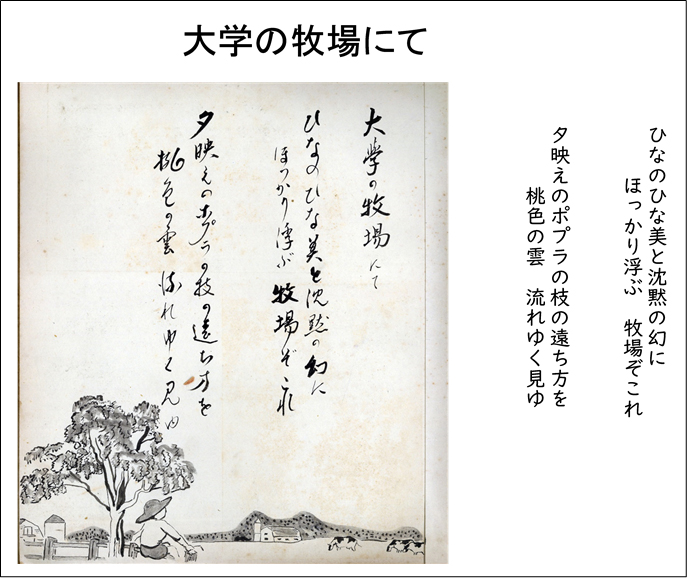 大学の牧場にて
ひなのひな美と沈黙の幻に
ほっかり浮ぶ　牧場ぞこれ
夕映えのポプラの枝の遠ち方を
桃色の雲　流れゆく見ゆ
大學の牧場にて
ひなのひな美と沈黙の幻に
ほつかり浮ぶ 牧場ぞこれ
夕映えのポプラの枝の遠ち方を
桃色の雲 流れゆく見ゆ